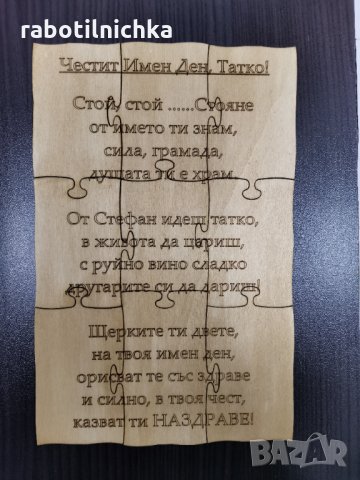 rabotilnichka
Честит Имен Ден, Татко!
Стой, стой ......Стояне
от името ти знам,
сила, грамада,
душата ти е храм.
От Стефан идеш татко,
в живота да цариш,
с руйно вино сладко
другарите си да дариш!
Щерките ти двете,
на твоя имен ден,
орисват те със здраве
и силно, в твоя чест,
казват ти НАЗДРАВЕ!
BAZAR